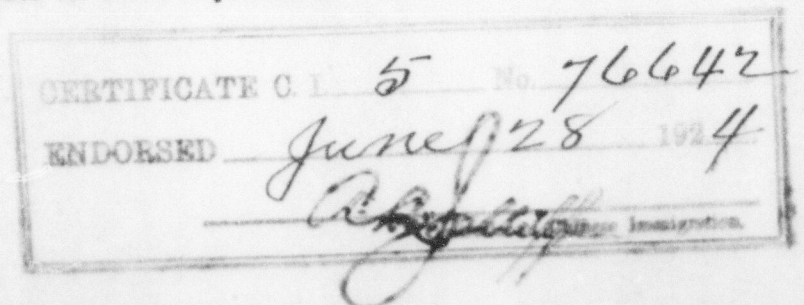 CERTIFICATE C. I. 5 No. 76642
ENDORSED June 28 1924
Immigration.